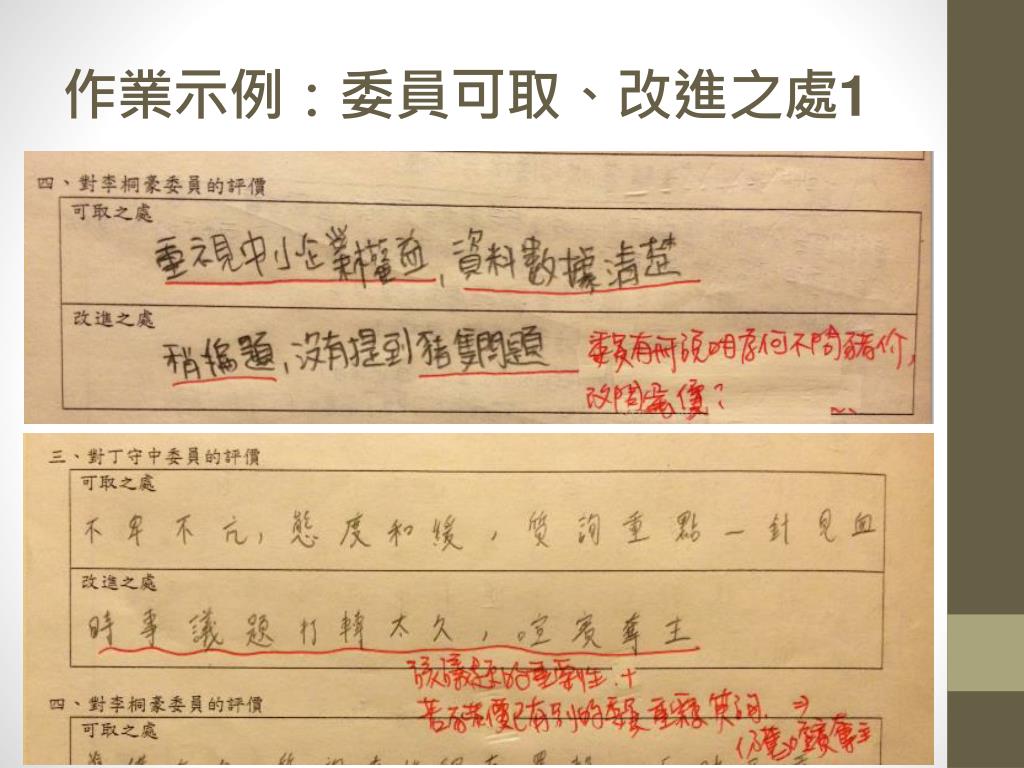 作業示例：委員可取、改進之處1
四、對李桐豪委員的評價
可取之處
重視中小企業權益，資料數據清楚
改進之處
稍偏題，沒有提到豬隻問題
委員有所說明為何不問豬价，
改問蛋價？
三、對丁守中委員的評價
可取之處
不卑不亢，態度和緩，質詢重點一針見血
改進之處
時事議題打轉太久，喧賓奪主
該議題的重要性.+
若豬價已有別的委員重複質詢. ⇒
仍覺喧賓奪主
四、對李桐豪委員的評價
可取之處